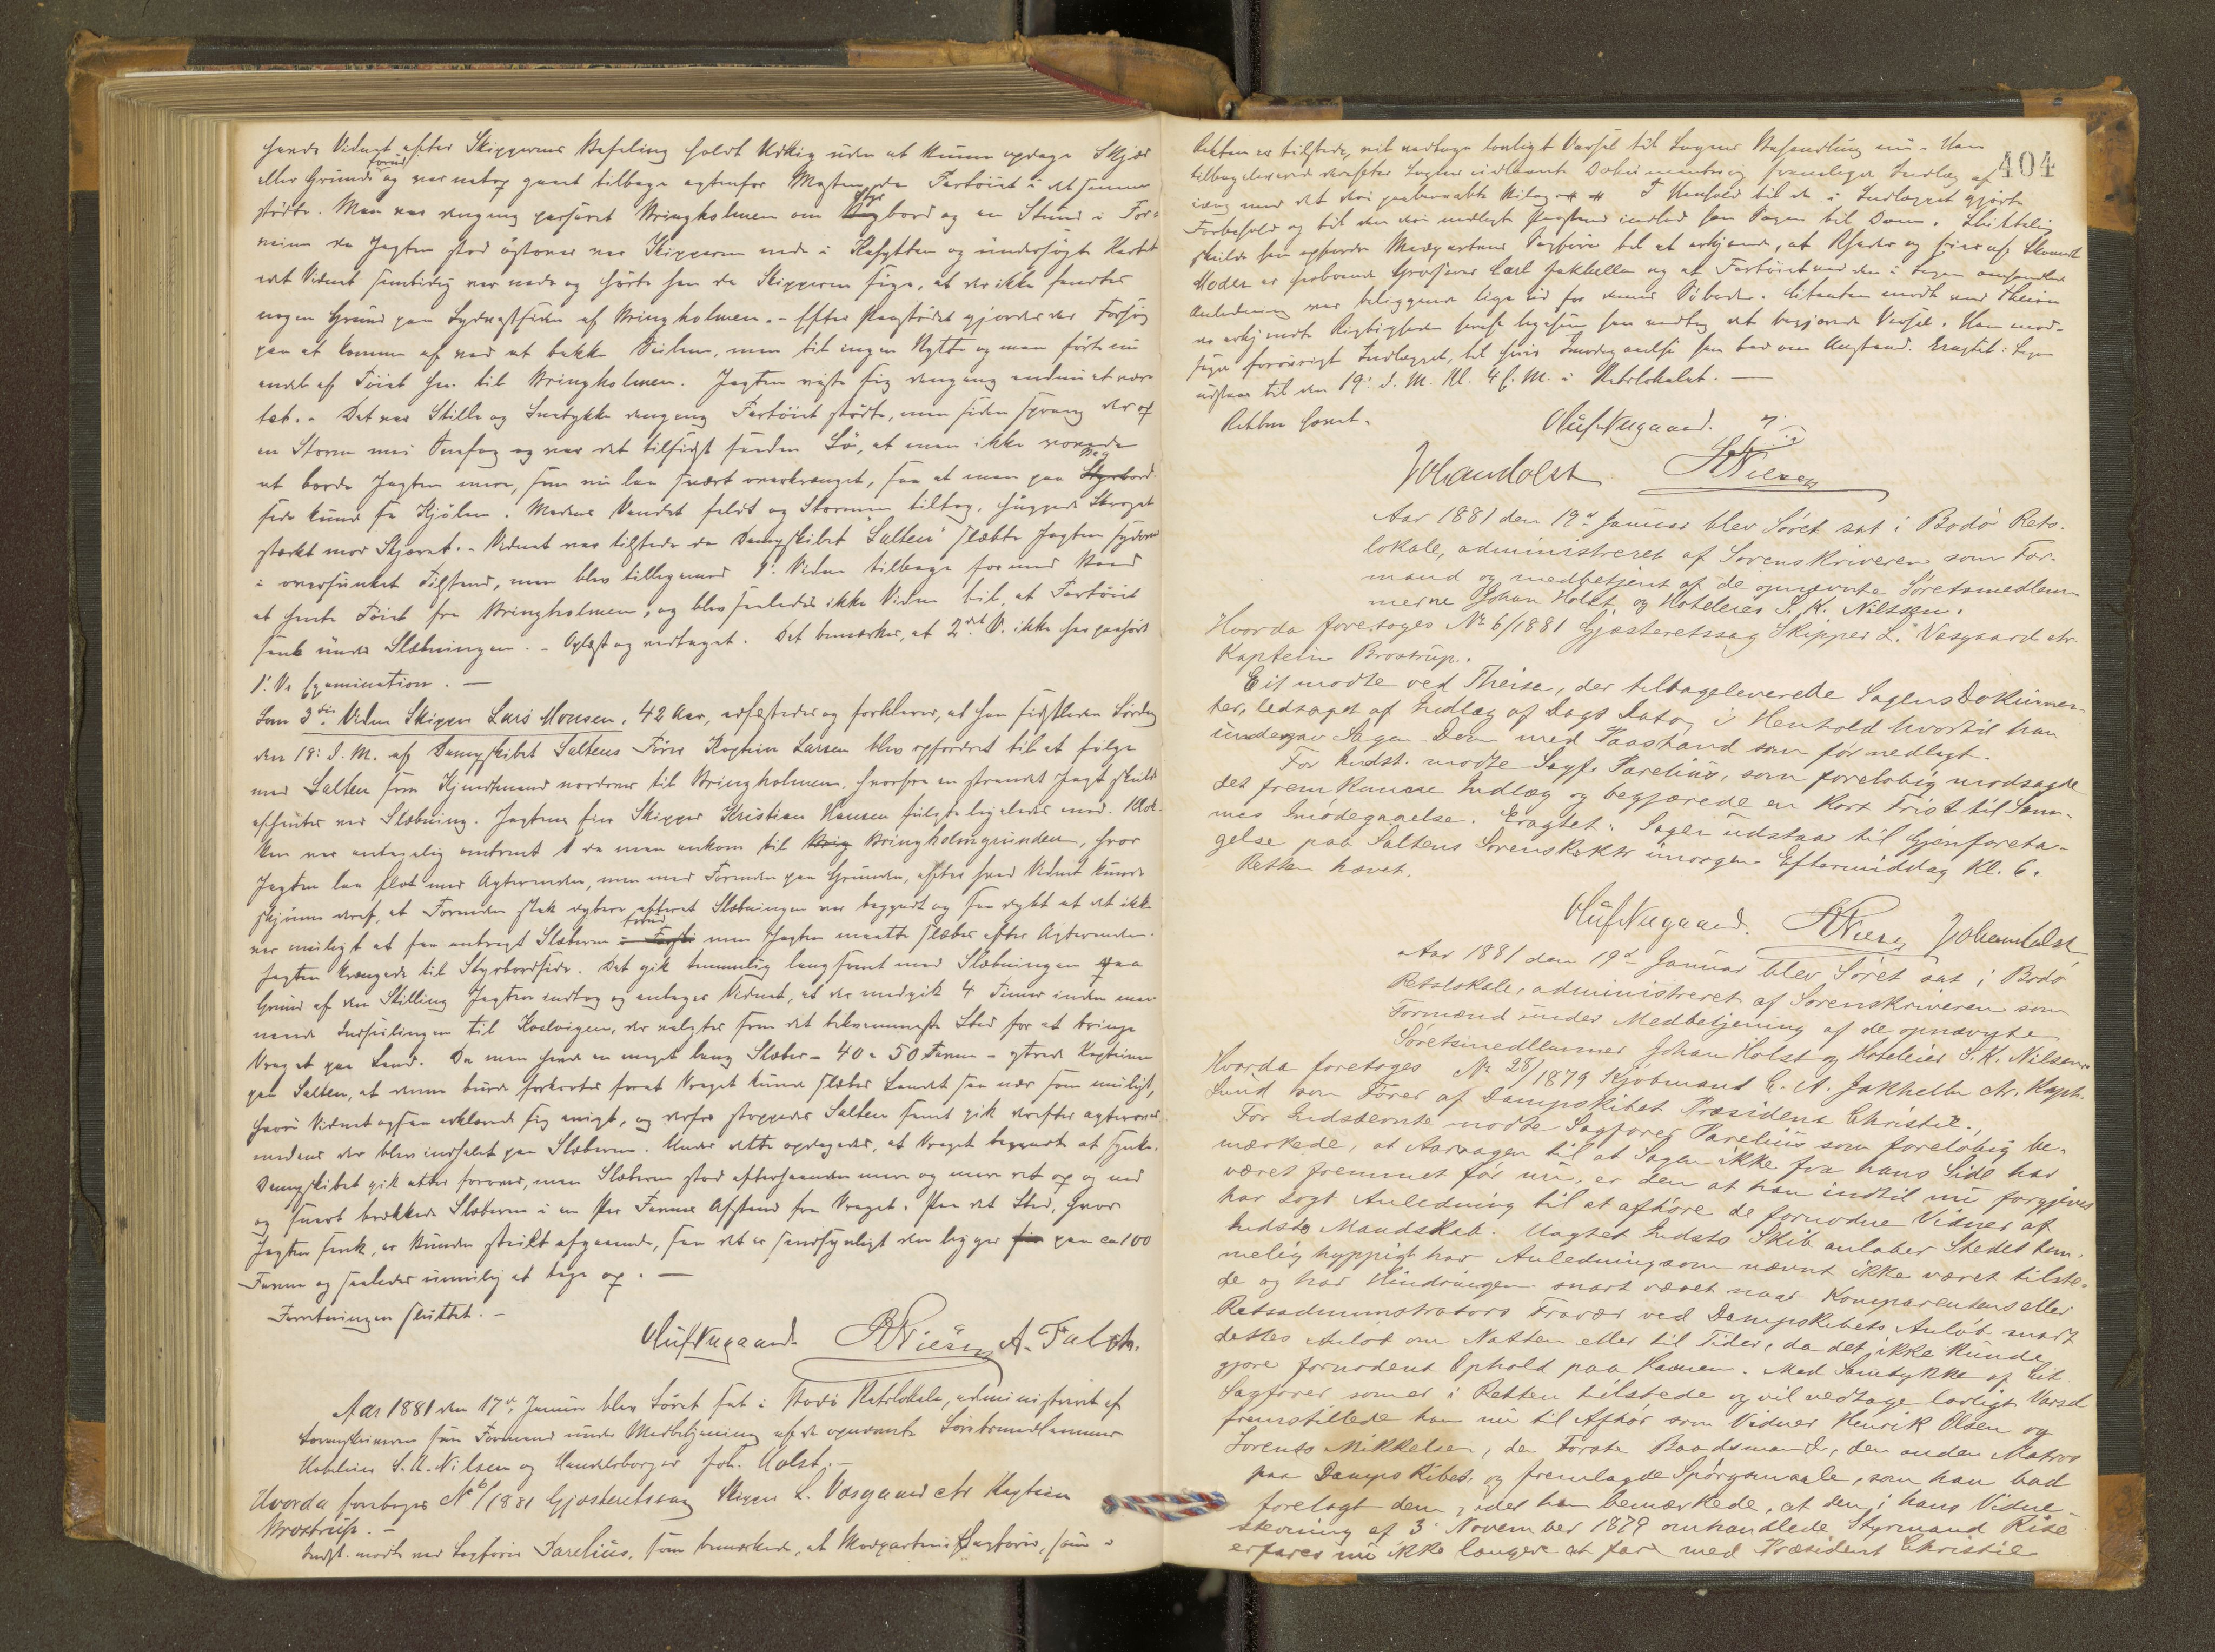 havde Vidnet efter Skipperens Befaling holdt Udkig uden at kunne opdage Skjær
eller Grunde forud og var netop gaaet tilbage agtenfor Masten, da Fartöiet i det samme
stödte. Man var dengang passeret Bringholmen om Styrbord og en Stund i For-
veien da Jagten stod östover var Skipperen nede i Kahytten og undersögte Kartet
idet Vidnet samtidig var nede og hörte han da Skipperen sige, at der ikke fandtes
nogen Grund paa Sydvestsiden af Bringholmen. - Efter Paastödet gjordes der Forsög
paa at komme af ved at bakke Seilene, men til ingen Nytte og man förte nu
endel af Töiet hen til Bringholmen. Jagten viste sig dengang endnu at være
tæt. - Det var Stille og Snetykke dengang Fartöiet stödte, men siden sprang der op
en Storm med Snefog og var det tilsidst saadan Sö, at man ikke vovede
at borde Jagten mere, som nu laa svært overkrænget, saa at man paa Bagbord
side kunde se Kjölen. Medens Vandet faldt og Stormen tiltog, huggede Skroget
stærkt mod Skjæret. - Vidnet var tilstede da Dampskibet "Salten" slæbte Jagten sydover
i oversunket Tilstand, men blev tilligemed 1' Vidne tilbage for med Baad
at hente Töiet fra Bringholmen, og blev saaledes ikke Vidne til, at Fartöiet
sank under Slæbningen. - Oplæst og vedtaget. Det bemærkes, at 2det V. ikke har paahört
1' Vs Examination. -
Som 3die Vidne Skipper Lars Monsen, 42 Aar, edfæstedes og forklarer, at han sidstleden Lördag
den 18: d. M. af Dampskibet Saltens Förer Kaptein Larsen blev opfordret til at fölge
med Salten som Kjendtmand nordover til Bringholmen, hvorfra en strandet Jagt skulde
afhentes ved Slæbning. Jagtens Eier Skipper Kristian Hansen fulgte ligeledes med. Klok-
ken var antagelig omtrent 1 da man ankom til Bringholmgrunden, hvor
Jagten laa flot med Agterenden, men med Forenden paa Grunden, efter hvad Vidnet kunde
skjönne deraf, at Forenden stak dybere efterat Slæbningen var begyndt og saa dybt at det ikke
var muligt at faa anbragt Slæberen forud men Jagten maatte slæbes efter Agterenden.
Jagten krængede til Styrbordside. Det gik temmelig langsomt med Slæbningen paa
Grund af den Stilling Jagten indtog og antager Vidnet, at der medgik 4 Timer inden man
naaede Indseilingen til Kosvigen, der valgtes som det bekvemmeste Sted for at bringe
Vraget paa Land. Da man havde en meget lang Slæber - 40 a 50 Favne - ytrede Kapteinen
paa Salten, at denne burde forkortes forat Vraget kunde slæbes Landet saa nær som muligt,
hvori Vidnet ogsaa erklærede sig enigt, og derfor stoppedes Salten samt gik derefter agterover
medens der blev indhalet paa Slæberen. Under dette opdagedes, at Vraget begyndte at synke.
Dampskibet gik atter forover, men Slæberen stod efterhaanden mere og mere ret op og ned
og snart brækkede Slæberen i en Par Favnes Afstand fra Vraget. Paa det Sted, hvor
Jagten sank, er Bunden steilt afgaaende, saa det er sandsynligt den ligger paa ca 100
Favne og saaledes umulig at tage op. -
Forretningen sluttet. -
Oluf Nugaard. SKNielsen A. Falch.
Aar 1881 den 17de Januar blev Söret sat i Bodö Retslokale, administreret af
Sorenskriveren som Formand under Medbetjening af de opnævnte Söretsmedlemmer
Hotelier S. K. Nilsen og Handelsborger Joh. Holst. -
Hvorda foretoges No 6/1881 Gjæsteretssag Skipper L. Vasgaard ctr Kaptein
Brostrup. -
Indst. mödte ved Sagförer Parelius, som bemærkede, at Modpartens Sagförer, som i
404
Retten er tilstede, vil vedtage lovligt Varsel til Sagens Behandling nu. Han
tilbageleverede derefter Sagens udlaante Dokumenter og fremlagde Indlæg af
idag med det deri paaberaabte Bilag. I Henhold til de i Indlægget gjorte
Forbehold og til den deri nedlagte Paastand indlod han Sagen til Dom. Sluttelig
skulde han opfordre Modpartens Sagförer til at erkjende, at Rheder og Eier af Skonnert
Moder er herboende Grosserer Carl Jakhelln og at Fartöiet ved den i Sagen omhandlede
Anledning var beliggende lige ud for dennes Söbod. Citanten mödte ved Theisen
der erkjendte Rigtigheden heraf ligesom han vedtog det begjærede Varsel. Han mod-
sagde foröivrigt Indlægget, til hvis Imödegaaelse han bad om Anstand. Eragtet: Sagen
udstaar til den 19: d. M. Kl. 4 E. M. i Retslokalet. -
Retten hævet.
Oluf Nugaard.
Johan Holst SKNielsen
Aar 1881 den 19de Januar blev Söret sat i Bodö Rets-
lokale, administreret af Sorenskriveren som For-
mand og medbetjent af de opnævnte Söretsmedlem-
merne Johan Holst og Hoteleier S. K. Nilssen.
Hvorda foretoges No 6/1881 Gjæsteretssag Skipper L. Vasgaard ctr.
Kaptein Brostrup.
Cit mödte ved Theisen, der tilbageleverede Sagens Dokumen-
ter, ledsaget af Indlæg af Dags Dato, i Henhold hvortil han
undergav Sagen Dom med Paastand som för nedlagt.
For Indst. mödte Sagf. Parelius, som forelöbig modsagde
det fremkomne Indlæg og begjærede en kort Frist til Sam-
mes Imödegaaelse. Eragtet: Sagen udstaar til Gjenforeta-
gelse paa Saltens Sorenskrktr imorgen Eftermiddag Kl. 6.
Retten hævet.
Oluf Nugaard. SKNielsen Johan Holst
Aar 1881 den 19de Januar blev Söret sat i Bodö
Retslokale, administreret af Sorenskriveren som
Formand under Medbetjening af de opnævnte
Söretsmedlemmer Johan Holst og Hoteleier S. K. Nilsen.
Hvorda foretoges No 28/1879 Kjöbmand C. A. Jakhelln ctr. Kapt.
Lund som Förer af Dampskibet Præsident Christie.
For Indstevnte mödte Sagförer Parelius som forelöbig be-
mærkede, at Aarsagen til at Sagen ikke fra hans Side har
været fremmet för nu, er den at han indtil nu forgjæves
har sögt Anledning til at afhöre de fornödne Vidner af
Indsts Mandskab. Uagtet Indsts Skib anlöber Stedet tem-
melig hyppigt har Anledning som nævnt ikke været tilste-
de og har Hindringen snart været naar Komparentens eller
Retsadministrators Fravær ved Dampskibets Anlöb snart
dettes Anlöb om Natten eller til Tider, da det ikke kunde
gjöre fornödent Ophold paa Havnen. Med Samtykke af Cit
Sagförer som er i Retten tilstede og vil vedtage lovligt Varsel
fremstillede han nu til Afhör som Vidner Henrik Olsen og
Lorents Mikkelsen, den Förste Baadsmand, den anden Matros
paa Dampskibet, og fremlagde Spörgsmaale, som han bad
forelagt dem, idet han bemærkede, at den i hans Vidne
stevning af 3' November 1879 omhandlede Styrmand Rise
erfares nu ikke længere at fare med Præsident Christie